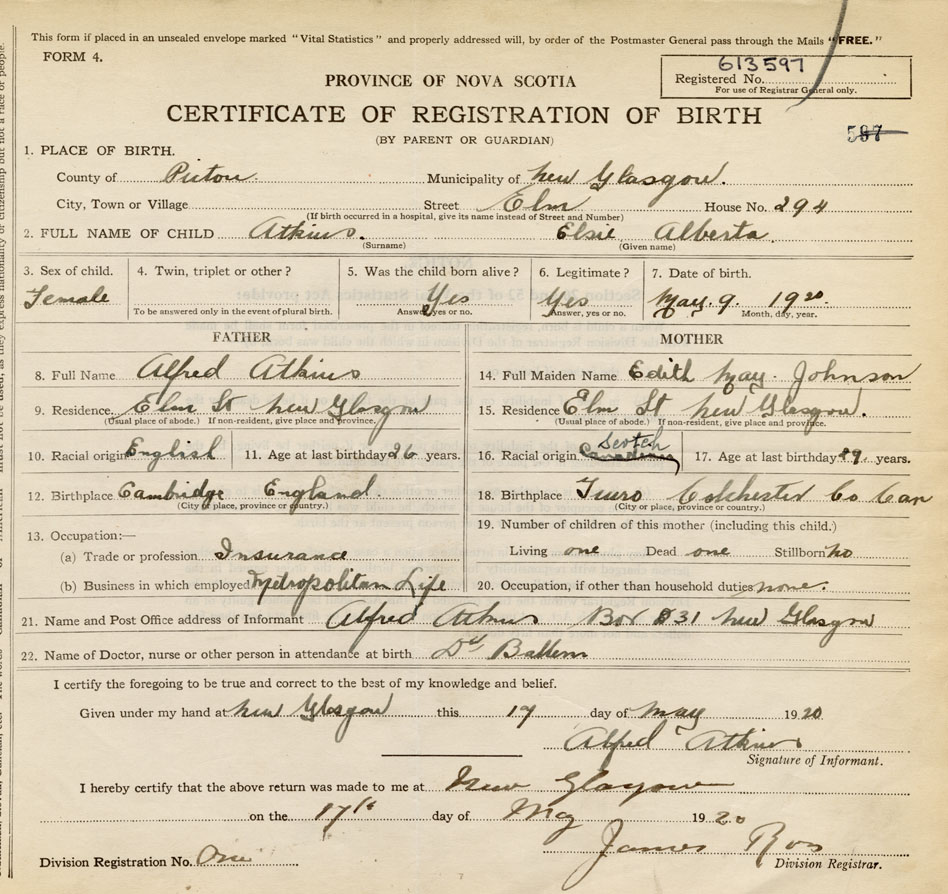 This form if placed in an unsealed envelope marked "Vital Statistics" and properly addressed will, by order of the Postmaster General pass through the Mails "FREE."
FORM 4.
613597
Registered No.
For use of Registrar General only.
PROVINCE OF NOVA SCOTIA
CERTIFICATE OF REGISTRATION OF BIRTH
(BY PARENT OR GUARDIAN)
597
1. PLACE OF BIRTH.
County of Pictou. Municipality of New Glasgow.
City, Town or Village Street Elm House No. 294
(If birth occurred in a hospital, give its name instead of Street and Number)
2. FULL NAME OF CHILD Atkins. Elsie Alberta
(Surname) (Given name)
3. Sex of child. 4. Twin, triplet or other? 5. Was the child born alive? 6. Legitimate? 7. Date of birth.
Female Yes Yes May. 9 1920
To be answered only in the event of plural birth. Answer, yes or no. Answer, yes or no. Month, day, year.
FATHER MOTHER
8. Full Name Alfred Atkins 14. Full Maiden Name Edith May. Johnson
9. Residence, Elm St New Glasgow 15. Residence Elm St New Glasgow.
(Usual place of abode.) If non-resident, give place and province. (Usual place of abode.) If non-resident, give place and province.
Scotch
10. Racial origin English 11. Age at last birthday 26 years. 16. Racial origin Canadian 17. Age at last birthday years.
12. Birthplace Cambridge England. 18. Birthplace Truro Colchester Co Can
(City or place, province or country.) (City or place, province or country.)
13. Occupation:— 19. Number of children of this mother (including this child.)
(a) Trade or profession Insurance Living one Dead one Stillborn no
(b) Business in which employed Metropolitan Life 20. Occupation, if other than household duties none.
21. Name and Post Office address of Informant Alfred Atkins Box 831 New Glasgow
22. Name of Doctor, nurse or other person in attendance at birth Dr Ballem
I certify the foregoing to be true and correct to the best of my knowledge and belief.
Given under my hand at New Glasgow this 17 day of May 1920
Alfred Atkins
Signature of Informant.
I hereby certify that the above return was made to me at New Glasgow
on the 17th day of May 1920
James Ross
Division Registration No. One Division Registrar.